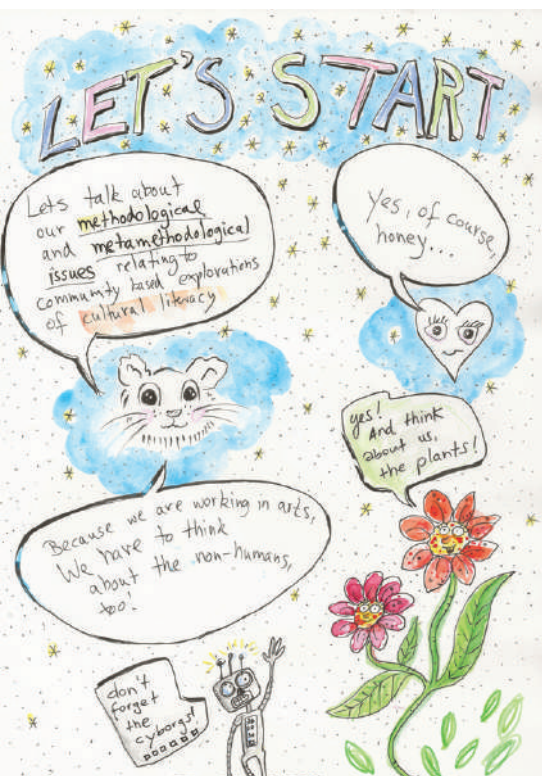 LET'S START
Lets talk about
our methodological
and metamethodological
issues relating to
community based explorations
of cultural literacy
Yes, of course,
honey....
yes!
And think
about us,
the plants!
Because we are working in arts,
We have to think
about the non-humans,
too!
don't
forget
the
cyborgs!